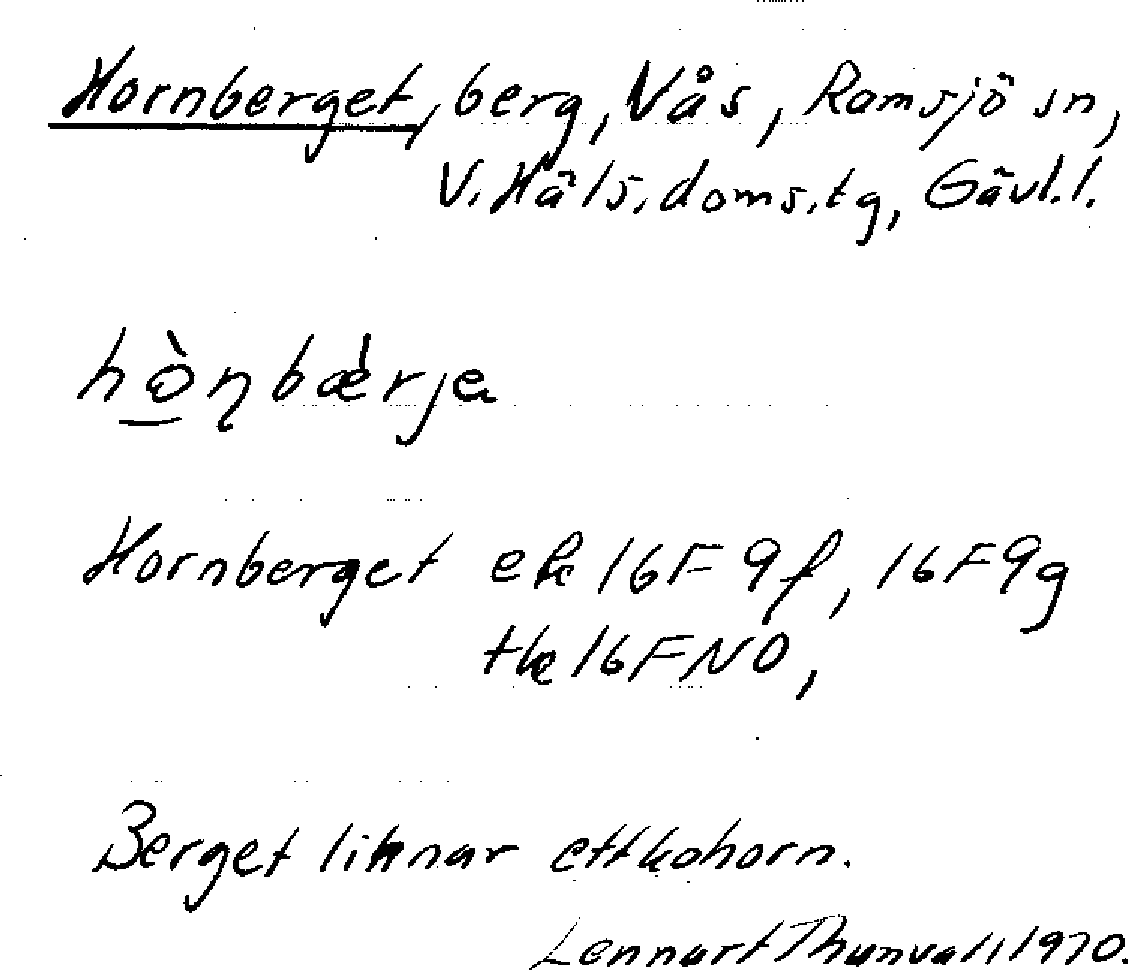 Hornberget, berg, Vås, Ramsjö sn,
V. Häls. doms. tg, Gävl. l.
hò̱ɳbǽrjɐ
Hornberget ek 16F 9f, 16F9g
tk 16F NO,
Berget liknar ett kohorn.
Lennart Thunvall 1970.